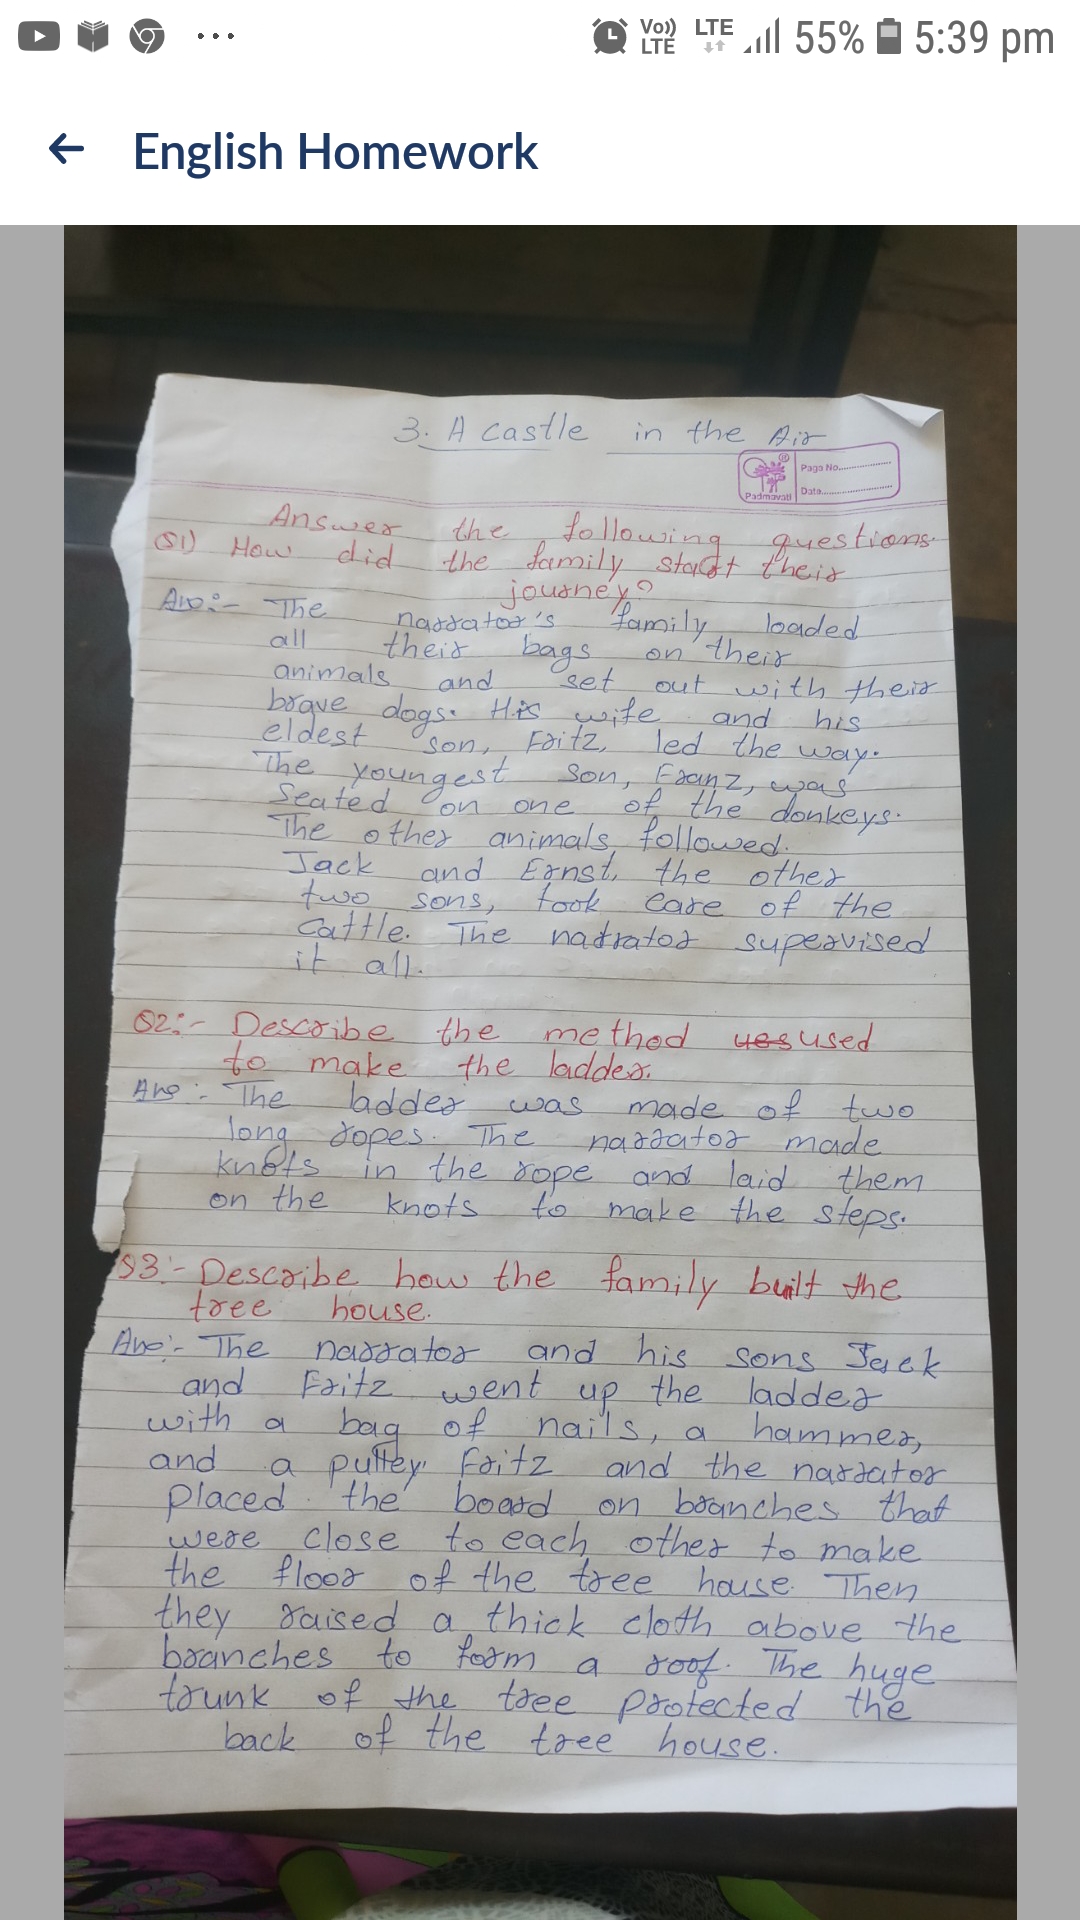 Vo)) LTE LTE 55% 5:39 pm
English Homework
3. A castle in the Air
Padmavati Page No.
Date
Answer the following questions.
Q1) How did the family start their
journey?
Ans:- The narrator's family loaded
all their bags on their
animals and set out with their
brave dogs. His wife and his
eldest son, Fritz, led the way.
The youngest son, Franz, was
Seated on one of the donkeys.
The other animals followed.
Jack and Ernst, the other
two sons, took care of the
Cattle. The narrator supervised
it all.
Q2:- Describe the method ues used
to make the ladder.
Ans:- The ladder was made of two
long ropes. The narrator made
knots in the rope and laid them
on the knots to make the steps.
Q3:- Describe how the family built the
tree house.
Ans:- The narrator and his sons Jack
and Fritz went up the ladder
with a bag of nails, a hammer,
and a pulley. Fritz and the narrator
placed the board on branches that
were close to each other to make
the floor of the tree house. Then
they raised a thick cloth above the
branches to form a roof. The huge
trunk of the tree protected the
back of the tree house.